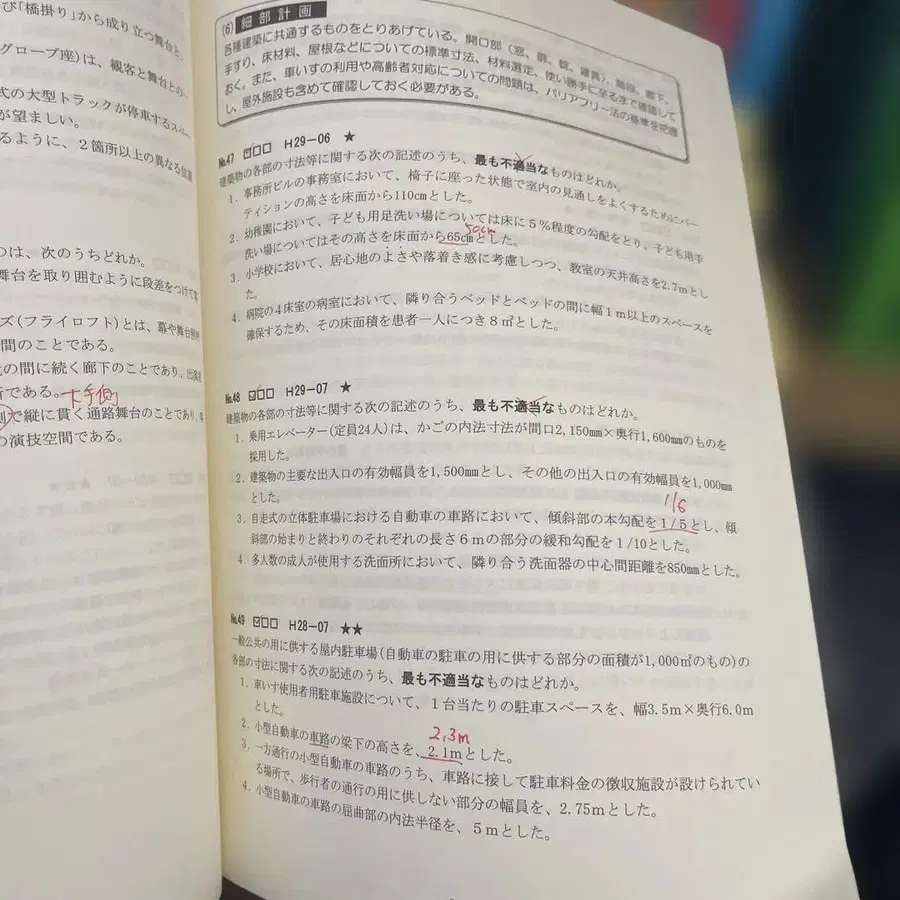 び「橋掛り」から成り立つ舞台と、
グローブ座)は、観客と舞台との、
式の大型トラックが停車するスペー
が望ましい。
るように、2箇所以上の異なる位置
つは、次のうちどれか。
舞台を取り囲むように段差をつけて客
ズ(フライロフト)とは、幕や舞台照明
間のことである。
の間に続く廊下のことであり、出演者
所である。
下手側
で縦に貫く通路舞台のことであり、
の演技空間である。
(6) 細部計画
各種建築に共通するものをとりあげている。開口部(窓、扉、錠、建具)、階段、廊下、
手すり、床材料、屋根などについての標準寸法、材料選定、使い勝手に至るまで確認して
おく。また、車いすの利用や高齢者対応についての問題は、バリアフリー法の基準を把握
し、屋外施設も含めて確認しておく必要がある。
No.47 ☑□□ H29-06 ★
建築物の各部の寸法等に関する次の記述のうち、最も不適当なものはどれか。
1. 事務所ビルの事務室において、椅子に座った状態で室内の見通しをよくするためにパー
ティションの高さを床面から110cmとした。
2. 幼稚園において、子ども用足洗い場については床に5%程度の勾配をとり、子ども用手
50cm
洗い場についてはその高さを床面から65cmとした。
3. 小学校において、居心地のよさや落着き感に考慮しつつ、教室の天井高さを2.7mとし
た。
4. 病院の4床室の病室において、隣り合うベッドとベッドの間に幅1m以上のスペースを
確保するため、その床面積を患者一人につき8㎡とした。
No.48 ☑□□ H29-07 ★
建築物の各部の寸法等に関する次の記述のうち、最も不適当なものはどれか。
1. 乗用エレベーター(定員24人)は、かごの内法寸法が間口2,150㎜×奥行1,600㎜のものを
採用した。
2. 建築物の主要な出入口の有効幅員を1,500㎜とし、その他の出入口の有効幅員を1,000㎜
とした。
1/6
3. 自走式の立体駐車場における自動車の車路において、傾斜部の本勾配を1/5とし、傾
斜部の始まりと終わりのそれぞれの長さ6mの部分の緩和勾配を1/10とした。
4. 多人数の成人が使用する洗面所において、隣り合う洗面器の中心間距離を850㎜とした。
No.49 ☑□□ H28-07 ★★
一般公共の用に供する屋内駐車場(自動車の駐車の用に供する部分の面積が1,000㎡のもの)の
各部の寸法に関する次の記述のうち、最も不適当なものはどれか。
1. 車いす使用者用駐車施設について、1台当たりの駐車スペースを、幅3.5m×奥行6.0m
とした。
2.3m
2. 小型自動車の車路の梁下の高さを、2.1mとした。
3. 一方通行の小型自動車の車路のうち、車路に接して駐車料金の徴収施設が設けられてい
る場所で、歩行者の通行の用に供しない部分の幅員を、2.75mとした。
4. 小型自動車の車路の屈曲部の内法半径を、5mとした。